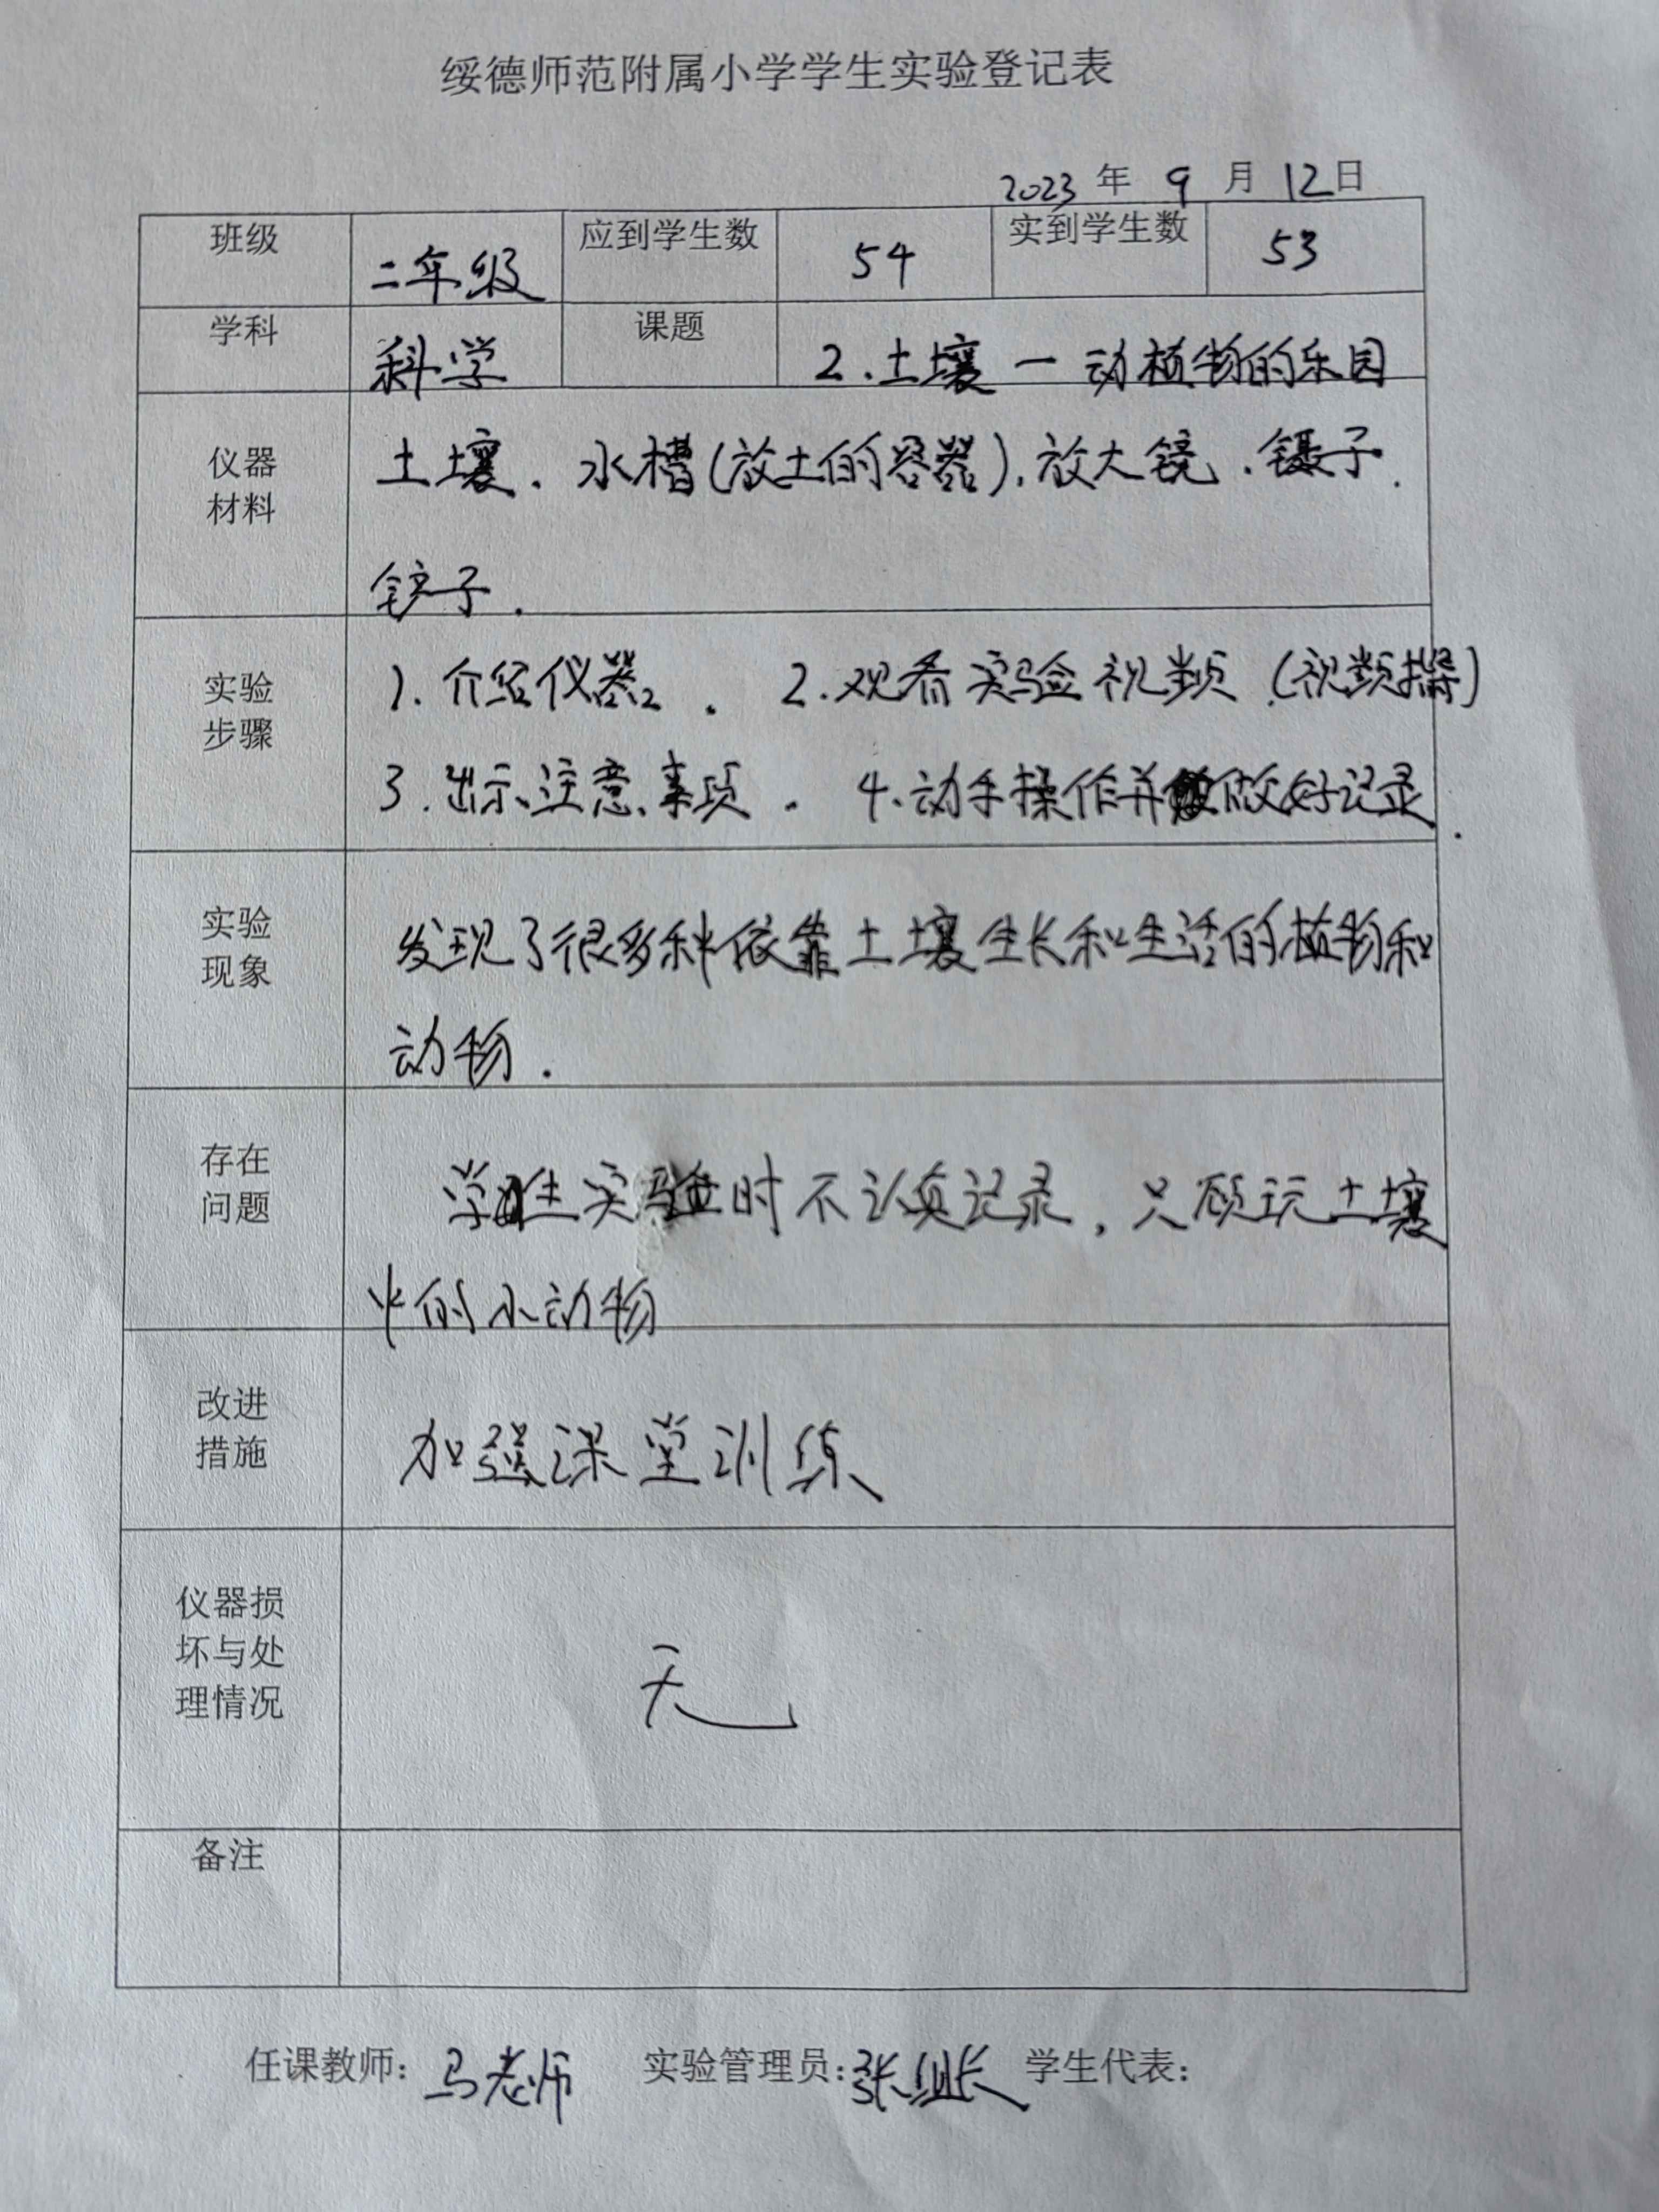 绥德师范附属小学学生实验登记表
2023 年 9 月 12日
班级 二年级 应到学生数 54 实到学生数 53
学科 科学 课题 2.土壤一动植物的乐园
仪器 土壤、水槽(放土的容器)、放大镜、镊子、
材料
铲子.
1.介绍仪器. 2.观看实验视频(视频指导)
实验
步骤
3.出示注意事项. 4.动手操作并做好记录.
实验 发现了很多种依靠土壤生长和生活的植物和
现象
动物.
存在
问题 学生实验时不认真记录,只顾玩土壤
中的小动物
改进
措施 加强课堂训练
仪器损
坏与处 无
理情况
备注
任课教师:马老师 实验管理员:张组长 学生代表: